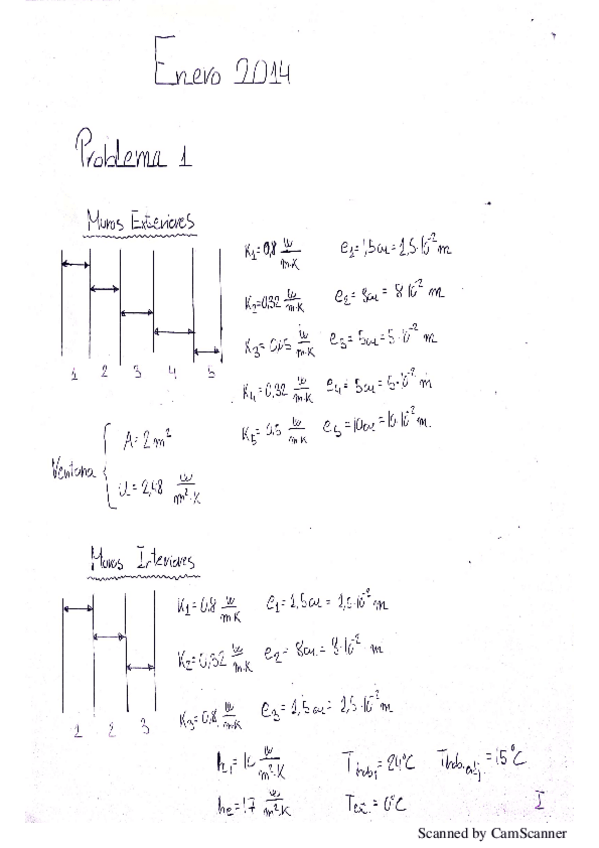 Enero 2014
Problema 1
Muros Exteriores
K₁=0,8 w/m·K e₁=1,5cm=1,5·10⁻² m
K₂=0,32 w/m·K e₂=8cm=8·10⁻² m
K₃=0,05 w/m·K e₃=5cm=5·10⁻² m
K₄=0,32 w/m·K e₄=5cm=5·10⁻² m
K₅= w/m·K e₅=10cm=10·10⁻² m.
1 2 3 4 5
Ventana { A=2m²
U=2,48 w/m²·K
Muros Interiores
K₁=0,8 w/mK e₁=1,5cm=1,5·10⁻² m
K₂=0,32 w/m·K e₂=8cm=8·10⁻² m
K₃=0,8 w/m·K e₃=1,5cm=1,5·10⁻² m
1 2 3
hᵢ=10 w/m²·K T =24°C T =15°C
hₑ=17 w/m²·K =0°C
I
Scanned by CamScanner